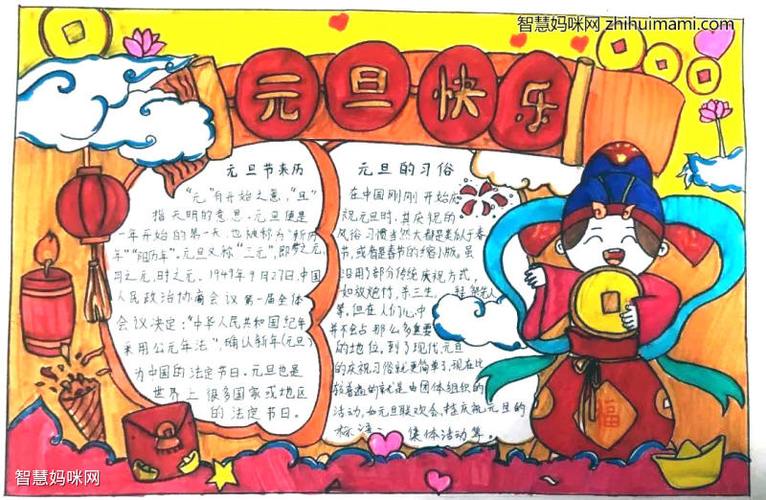 智慧妈咪网 zhihuimami.com
元旦快乐
元旦节来历
"元"有开始之意，"旦"
指天明的意思。元旦便是
一年开始的第一天，也被称为"新历
年""阳历年"。元旦又称"三元"，即岁之元、
月之元，时之元。1949年9月27日，中国
人民政治协商会议第一届全体
会议决定："中华人民共和国纪年
采用公元年法"，确认新年(元旦)
为中国的法定节日。元旦也是
世界上很多国家或地区
的法定节日。
元旦的习俗
在中国刚刚开始庆
祝元旦时，其庆祝的
风俗习惯当然大都是类似于春
节，或者是春节的缩小版。虽
沿用了部分传统庆祝方式，
如放炮竹，杀三生，
等，但在人们心中
并不会占那么多重要
的地位。到了现代，元旦
的庆祝习俗就更简单了，现在比
较普遍的就是由团体组织的
活动，如元旦联欢会，挂庆祝元旦的
标语、集体活动等。
福
智慧妈咪网